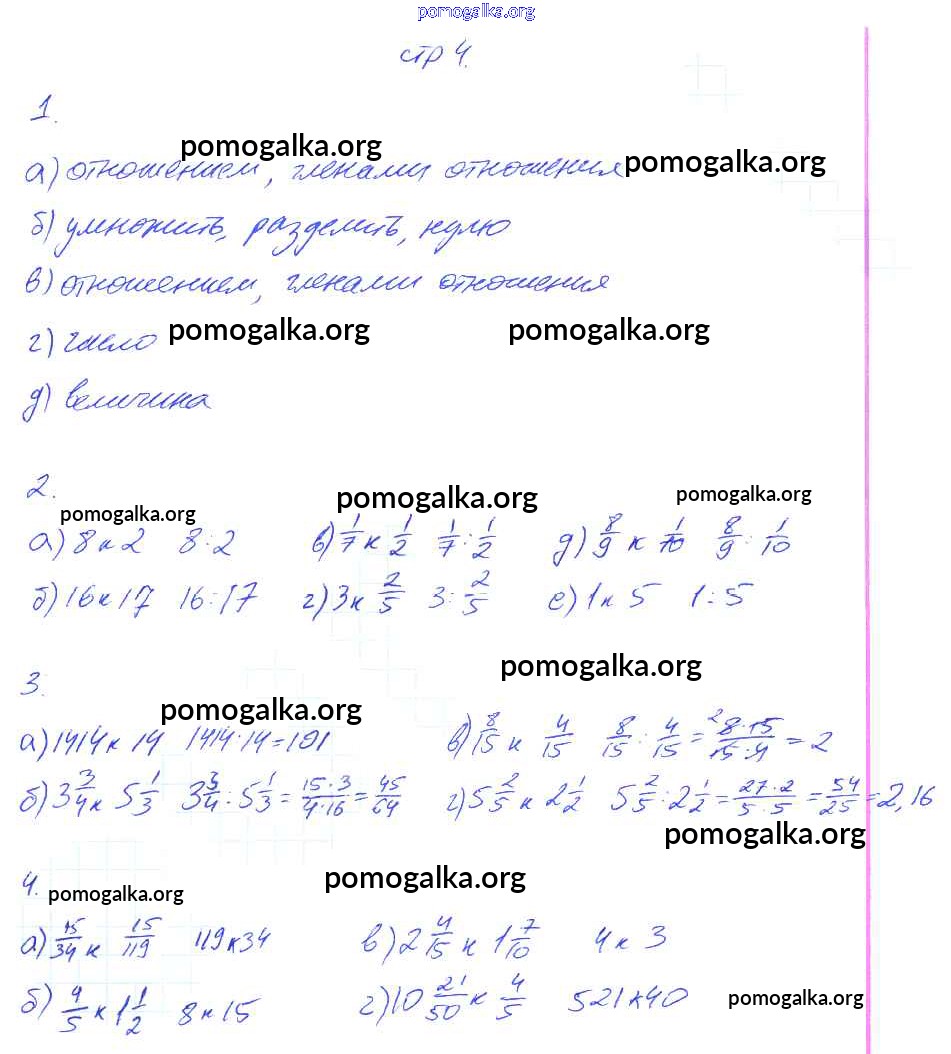 pomogalka.org
стр 4.
1.
pomogalka.org
а) отношением, членами отношения pomogalka.org
б) умножить, разделить, нулю
в) отношением, членами отношения
г) число pomogalka.org pomogalka.org
д) величина
2.
pomogalka.org pomogalka.org pomogalka.org
а) 8 к 2 8:2 в) 1/7 к 1/2 1/7 : 1/2 д) 8/9 к 1/10 8/9 : 1/10
б) 16 к 17 16:17 г) 3 к 2/5 3 : 2/5 е) 1 к 5 1:5
3. pomogalka.org
pomogalka.org
а) 1414 к 14 1414:14=101 в) 8/15 к 4/15 8/15 : 4/15 = 8·15/15·4 = 2
б) 3 3/4 к 5 1/3 3 3/4 : 5 1/3 = 15·3/4·16 = 45/64 г) 5 2/5 к 2 1/2 5 2/5 : 2 1/2 = 27·2/5·5 = 54/25 = 2,16
pomogalka.org
4. pomogalka.org pomogalka.org
а) 15/34 к 15/119 119 к 34 в) 2 4/15 к 1 7/10 4 к 3
б) 4/5 к 1 1/2 8 к 15 г) 10 21/50 к 4/5 521 к 40 pomogalka.org